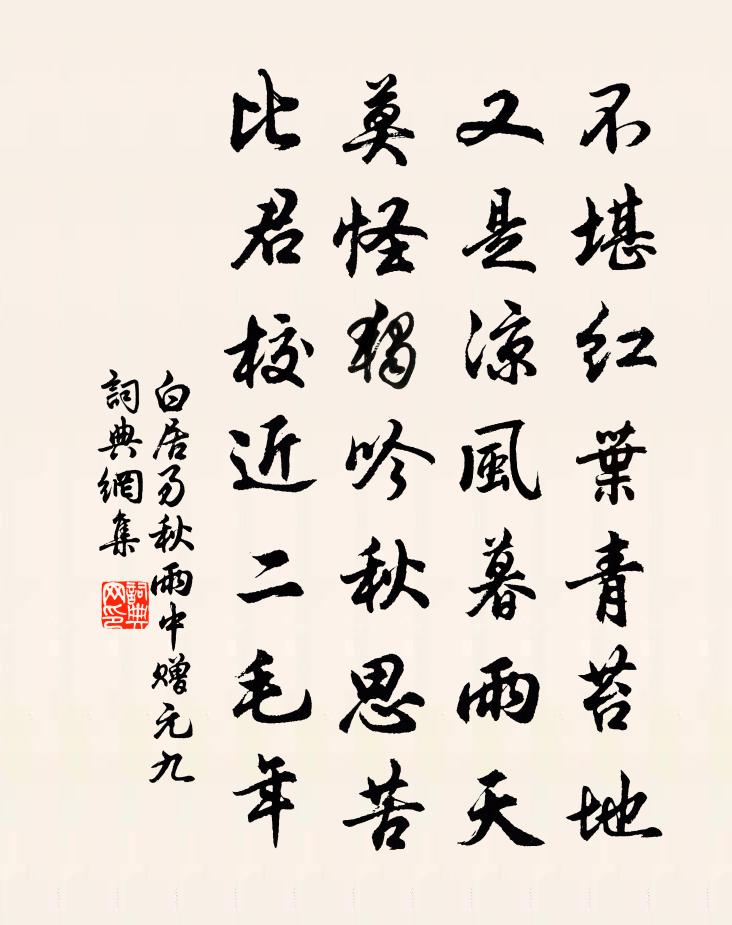 不堪紅葉青苔地
又是涼風暮雨天
莫怪獨吟秋思苦
比君校近二毛年
白居易秋雨中贈元九
詞典網集
詞典网印